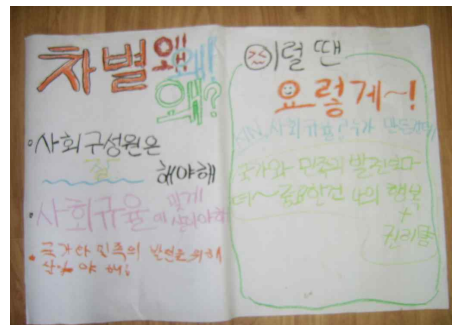 차별 왜 왜! 왜?
•사회구성원은
잘
해야해
•사회규율에 맞게 살아야해
•국가와 민족의 발전을 위해
살아야 해!
이럴 땐
요렇게~!
사회규율
국가와 민족의 발전보다
더~ 중요한건 나의 행복
+
권리